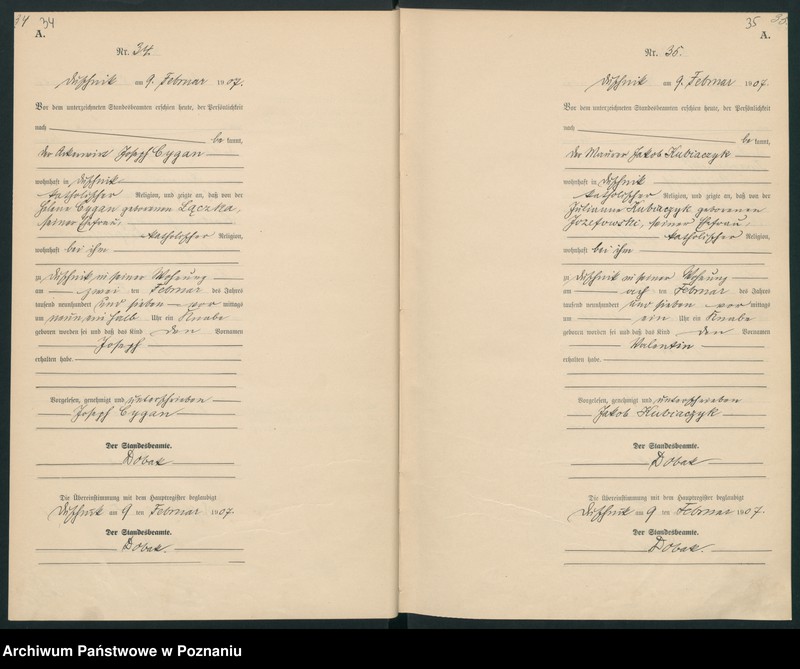 34 34
A.
Nr. 34.
Duschnik am 9. Februar 1907.
Vor dem unterzeichneten Standesbeamten erschien heute, der Persönlichkeit
nach
be kannt,
der Ackerwirt Joseph Cygan
wohnhaft in Duschnik
katholischer Religion, und zeigte an, daß von der
Helene Cygan geborenen Łączka,
seiner Ehefrau,
katholischer Religion,
wohnhaft bei ihm
zu Duschnik in seiner Wohnung
am zwei ten Februar des Jahres
tausend neunhundert und sieben vor mittags
um neun ein halb Uhr ein Knabe
geboren worden sei und daß das Kind den Vornamen
Joseph
erhalten habe.
Vorgelesen, genehmigt und unterschrieben
Joseph Cygan
Der Standesbeamte.
Dobak
Die Übereinstimmung mit dem Hauptregister beglaubigt
Duschnik am 9 ten Februar 1907.
Der Standesbeamte.
Dobak.
35
A.
Nr. 35.
Duschnik am 9. Februar 1907
Vor dem unterzeichneten Standesbeamten erschien heute, der Persönlichkeit
nach
be kannt,
der Maurer Jakob Kubiaczyk
wohnhaft in Duschnik
katholischer Religion, und zeigte an, daß von der
Julianna Kubiaczyk geborenen
Jozefowski, seiner Ehefrau,
katholischer Religion,
wohnhaft bei ihm
zu Duschnik in seiner Wohnung
am ach ten Februar des Jahres
tausend neunhundert und sieben vor mittags
um ein Uhr ein Knabe
geboren worden sei und daß das Kind den Vornamen
Valentin
erhalten habe.
Vorgelesen, genehmigt und unterschrieben
Jakob Kubiaczyk
Der Standesbeamte.
Dobak
Die Übereinstimmung mit dem Hauptregister beglaubigt
Duschnik am 9 ten Februar 1907.
Der Standesbeamte.
Dobak.
Archiwum Państwowe w Poznaniu